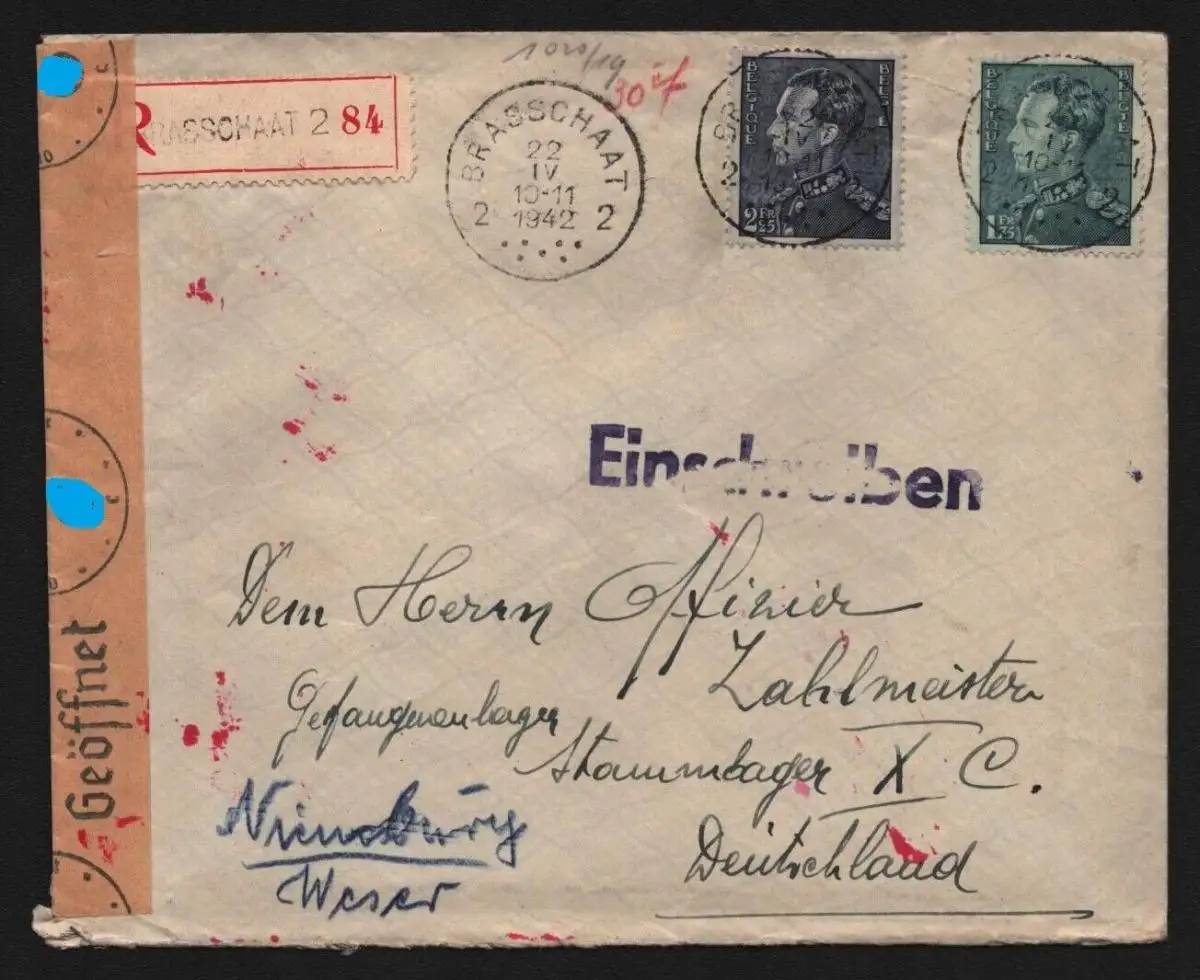 1020/19
30
R BRASSCHAAT 2 84
BRASSCHAAT
22
IV
10-11
1942
2 2
BELGIQUE BELGIE
2 FR 25
BELGIQUE BELGIE
1 FR 35
10-11
Einschreiben
Dem Herrn Offizier
Zahlmeister
Gefangnenlager
Stammlager X C.
Nienburg
Weser
Deutschland
Geöffnet